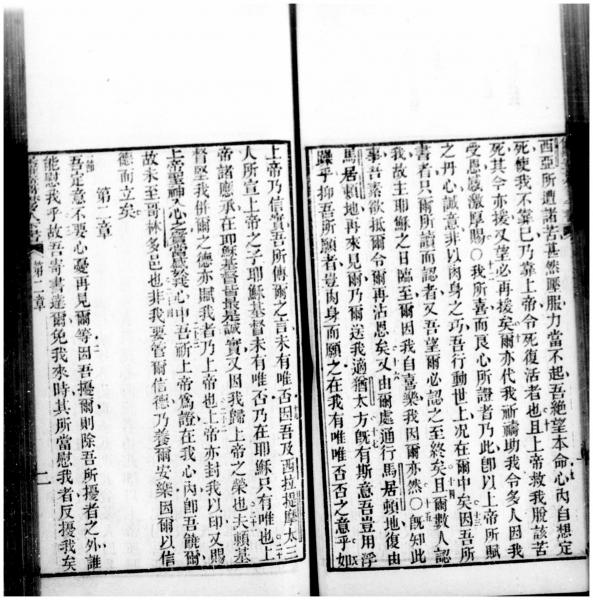 西亞所遭諸苦甚然壓服力當不起吾絕望本命心內自想定
死使我不靠己乃靠上帝令死復活者也且上帝救我脫該苦
死其令亦援又望必再援矣爾亦代我祈禱助我令多人因我
受惠感激厚賜○我所喜而良心所證者乃此卽以上帝所賦
之丹心誠意非以肉身之巧吾行動世上况在爾中矣因吾所
書者只爾所讀而認者又吾望爾必認之至終矣且爾數人認
我故主耶穌之日臨至爾因我自喜樂我因爾亦然○旣知此
事吾素欲抵爾令爾再沾恩矣又由爾處通行馬居賴地復由
馬居賴地再來見爾乃爾送我適猶太方旣有斯意吾豈用浮
躁乎抑吾所願者豈肉身而願之在我有唯唯否否之意乎如
上帝乃信實吾所傳爾之言未有唯否因吾及西拉提摩太三
人所宣上帝之子耶穌基督未有唯否乃在耶穌只有唯也上
帝諸應承在耶穌基督皆是誠實又因我歸上帝之榮也夫賴基
督堅我併爾之德亦賦我者乃上帝也上帝亦封我以印又賜
上帝聖神入心之為質於我心中吾祈上帝爲證在我心內卽吾饒爾
故未至哥林多邑也非我要管爾信德乃養爾安樂因爾以信
德而立矣
第二章
節吾定意不要心憂再見爾等因吾擾爾則除吾所擾者之外誰
能慰我乎故吾寄書達爾免我來時其所當慰我者反擾我矣
第二章